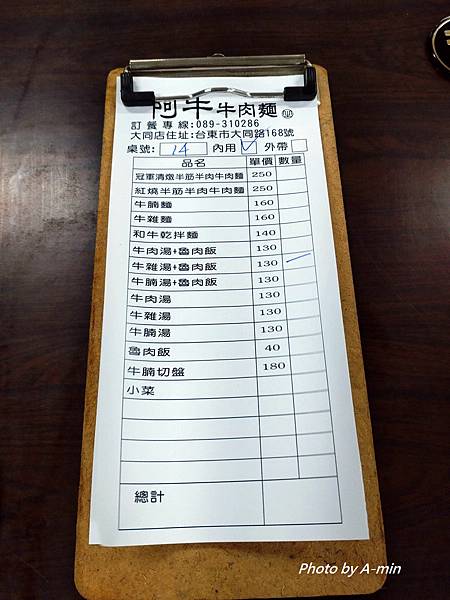 阿牛 牛肉麵
訂餐專線:089-310286
大同店住址:台東市大同路168號
桌號: 14 內用 ✓ 外帶
品名 單價 數量
冠軍清燉半筋半肉牛肉麵 250
紅燒半筋半肉牛肉麵 250
牛腩麵 160
牛雜麵 160
和牛乾拌麵 140
牛肉湯+魯肉飯 130
牛雜湯+魯肉飯 130
牛腩湯+魯肉飯 130
牛肉湯 130
牛雜湯 130
牛腩湯 130
魯肉飯 40
牛腩切盤 180
小菜
總計
Photo by A-min